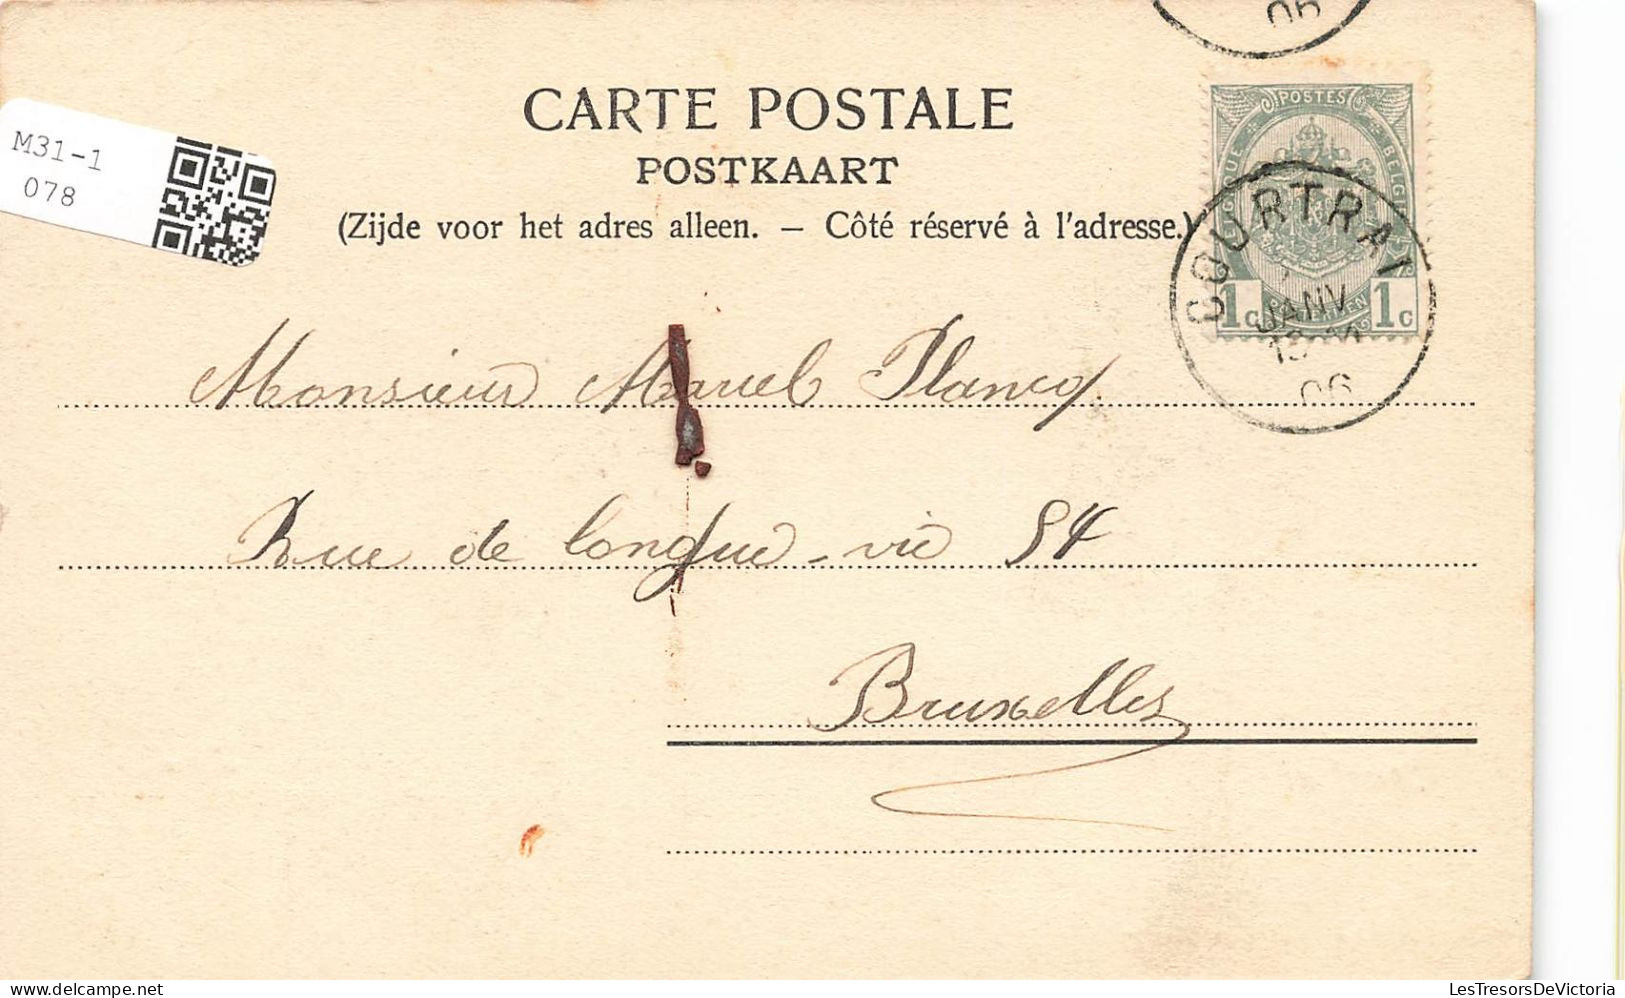 06
CARTE POSTALE
POSTKAART
(Zijde voor het adres alleen. — Côté réservé à l'adresse.)
M31-1
078
POSTES
BELGIQUE BELGIË
1c POSTERIJEN 1c
COURTRAI
JANV
06
Monsieur Marcel Plancq
Rue de longue-vie 54
Bruxelles
LesTresorsDeVictoria
delcampe.net